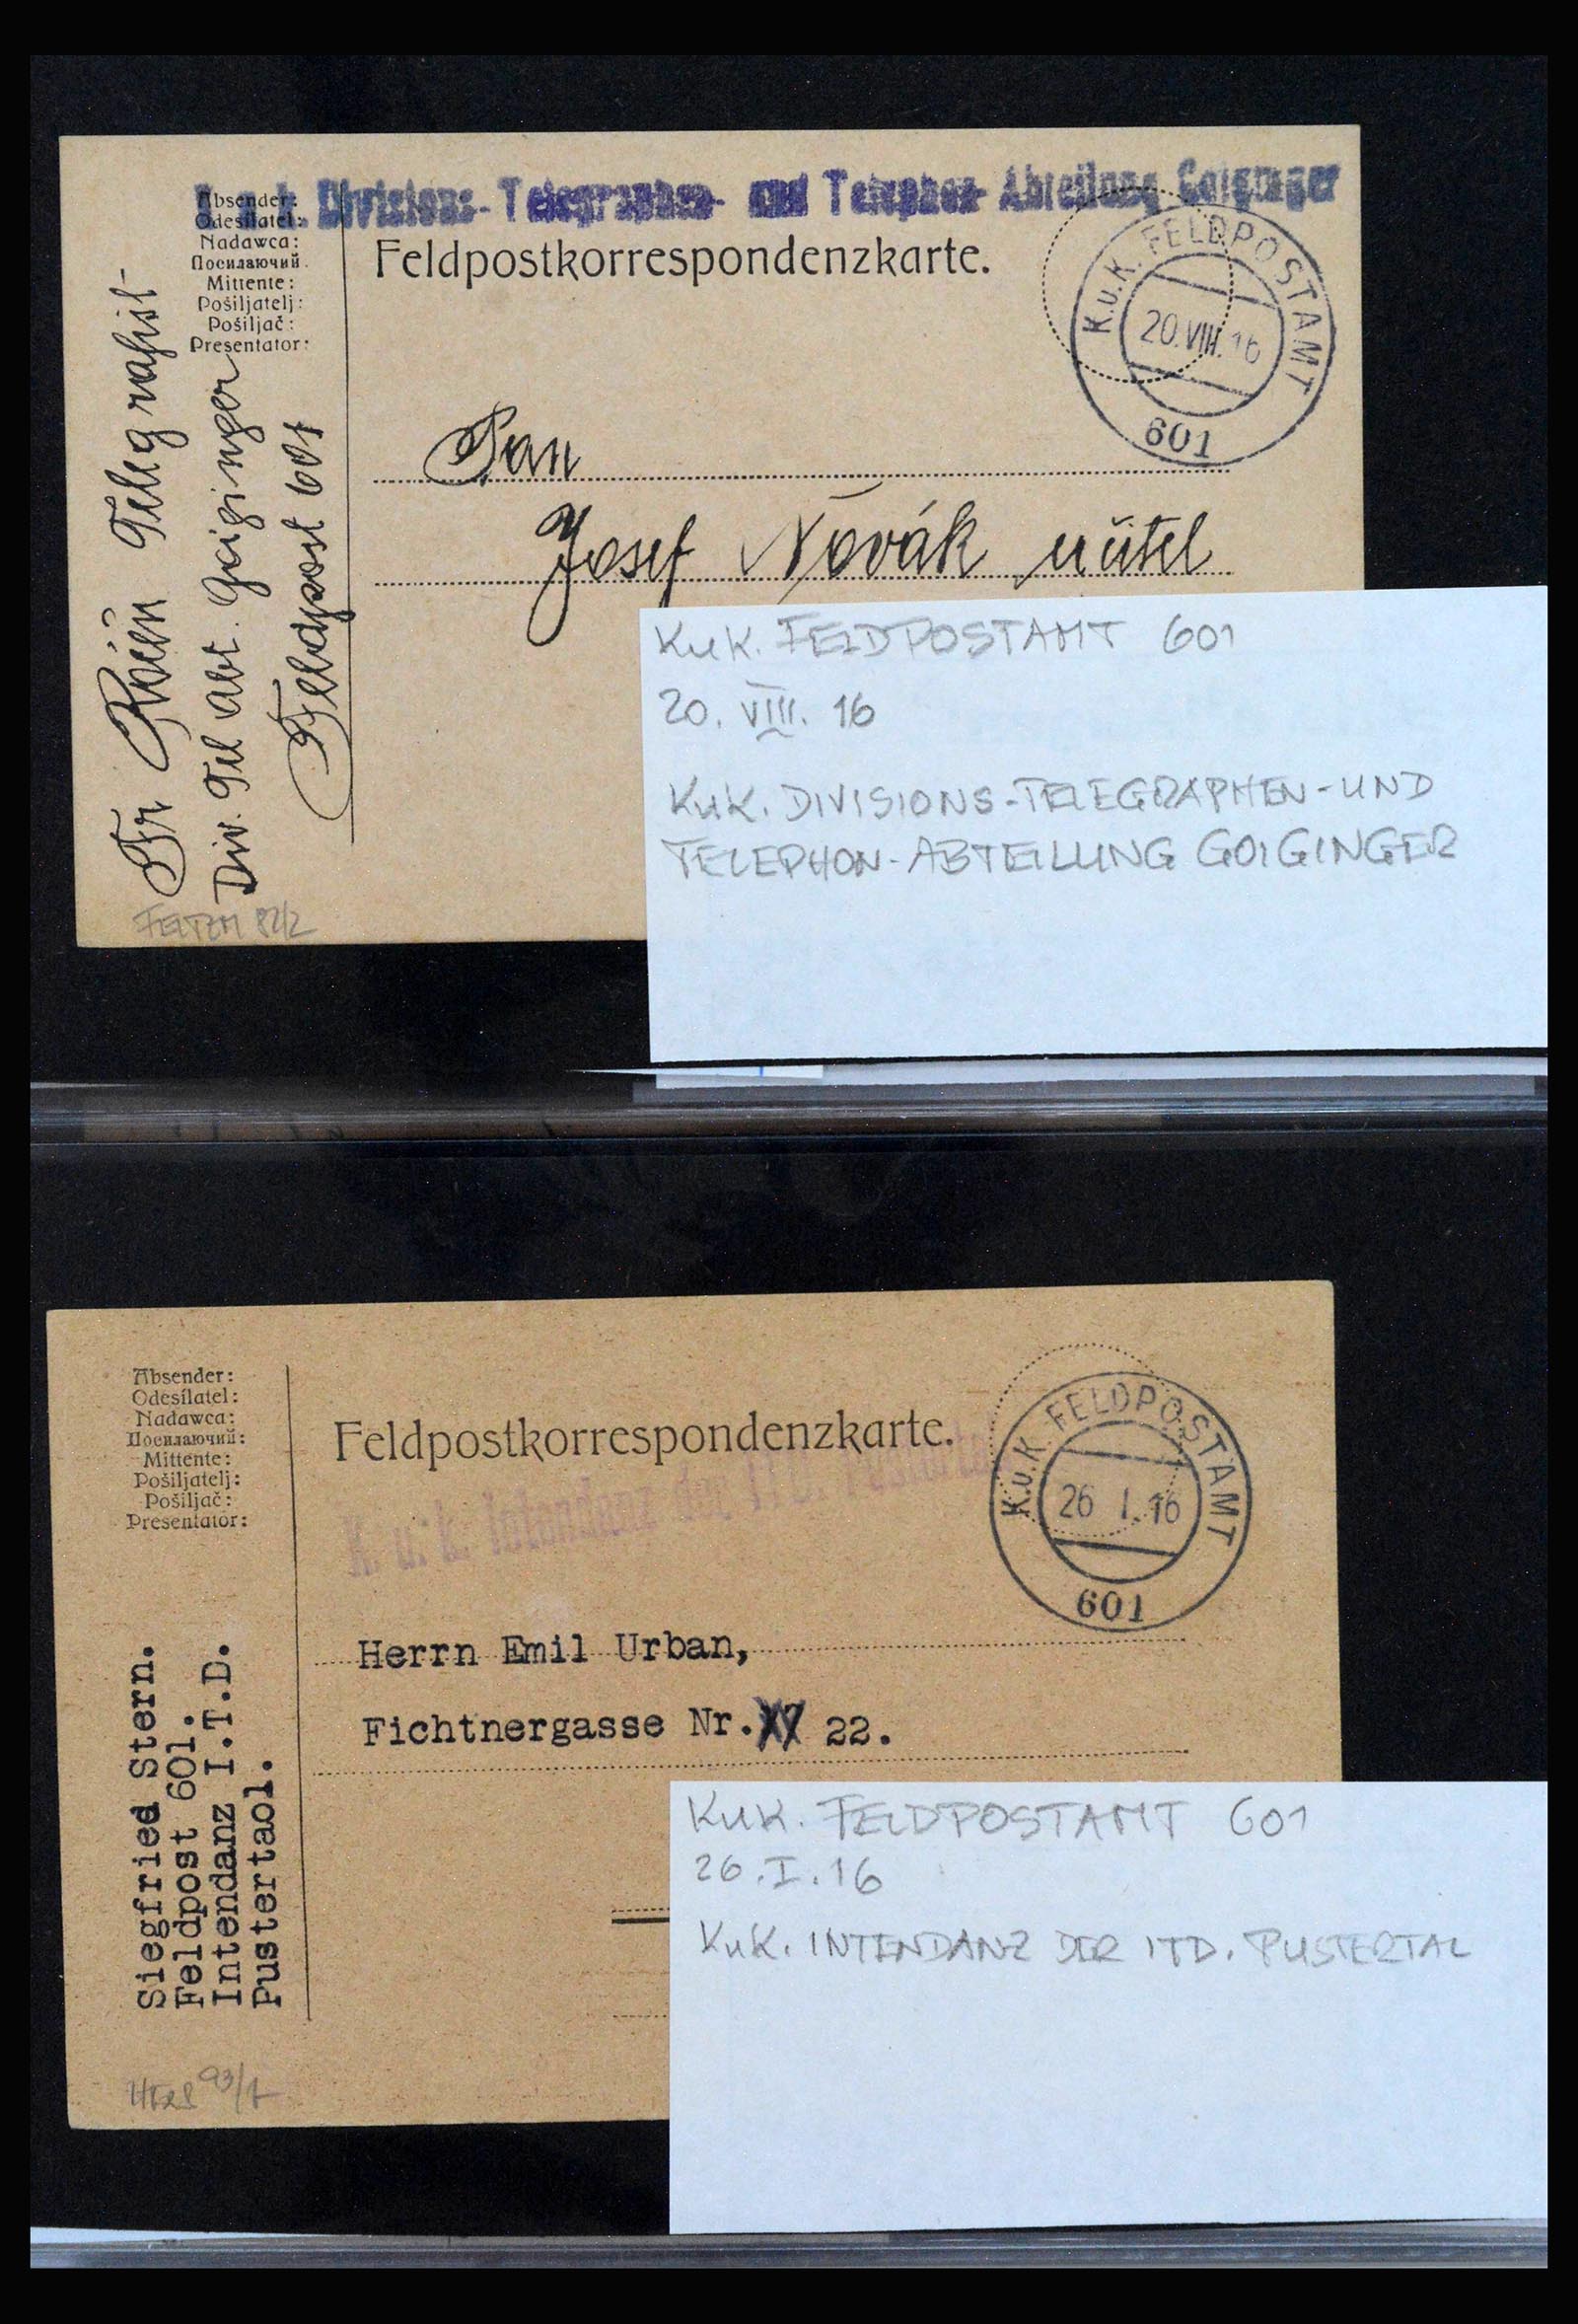 K. u. k. Divisions- Telegraphen- und Telephon- Abteilung Goiginger
Absender:
Odesílatel:
Nadawca:
Посилаючий.
Mittente:
Pošiljatelj:
Pošiljač:
Presentator:
Feldpostkorrespondenzkarte.
K.u.K. FELDPOSTAMT
20.VIII.16
601
Pan
Josef Novák
Fr Telegrafist
Div. Tel abt. Goiginger
Feldpost 601
FELTZM 82/2
KuK. FELDPOSTAMT 601
20. VIII. 16
KuK. DIVISIONS-TELEGRAPHEN-UND
TELEPHON-ABTEILUNG GOIGINGER
Absender:
Odesílatel:
Nadawca:
Посилаючий:
Mittente:
Pošiljatelj:
Pošiljač:
Presentator:
Feldpostkorrespondenzkarte.
K. u. k. Intendanz der ITD.
K.u.K. FELDPOSTAMT
26 I.16
601
Herrn Emil Urban,
Fichtnergasse Nr. 22.
Siegfried Stern.
Feldpost 601.
Intendanz I.T.D.
Pustertaol.
93/1
KuK. FELDPOSTAMT 601
26.I.16
KuK. INTENDANZ DER ITD. PUSTERTAL